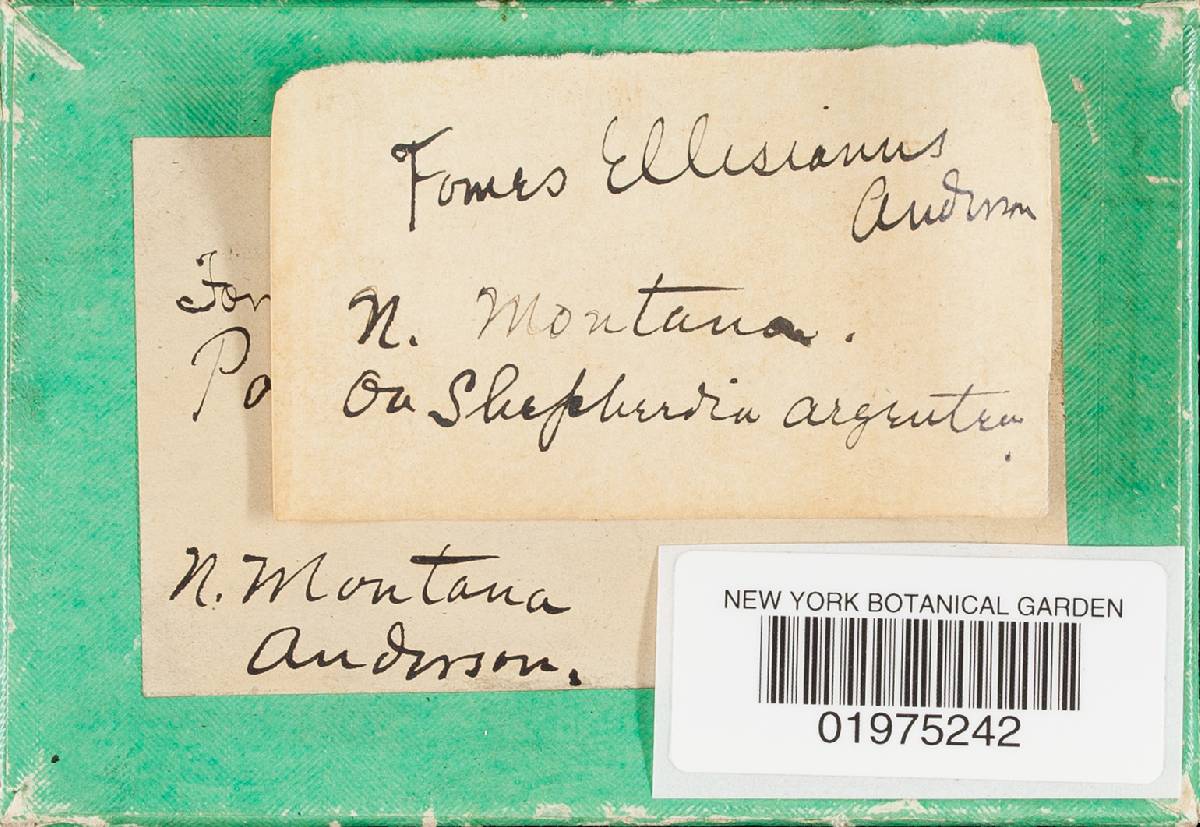 Fomes Ellisianus
Anderson
N. Montana.
On Shepherdia argentea.
N. Montana
Anderson.
NEW YORK BOTANICAL GARDEN
01975242